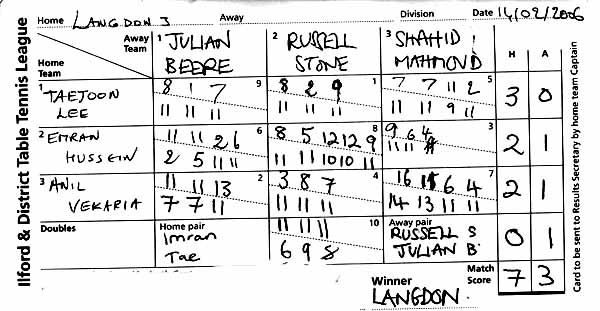 Ilford & District Table Tennis League
Home LANGDON J Away Division Date 14/02/2006
Away Team 1 JULIAN BEERE 2 RUSSELL STONE 3 SHAHID MAHMOUD H A
Home Team
1 TAEJOON LEE
8 1 7 9
11 11 11
8 2 9 1
11 11 11
7 7 11 2 5
11 11 9 11
3 0
2 EMRAN HUSSEIN
11 11 2 6 6
2 5 11 11
8 5 12 12 9 8
11 11 10 10 11
9 6 4 3
11 11
2 1
3 ANIL VEKARIA
11 11 13 2
7 7 11
3 8 7 4
11 11 11
16 11 6 4 7
14 13 11 11
2 1
Doubles
Home pair
Imran
Tae
11 11 11 10
6 9 8
Away pair
RUSSELL S
JULIAN B
0 1
Winner
LANGDON.
Match Score 7 3
Card to be sent to Results Secretary by home team Captain